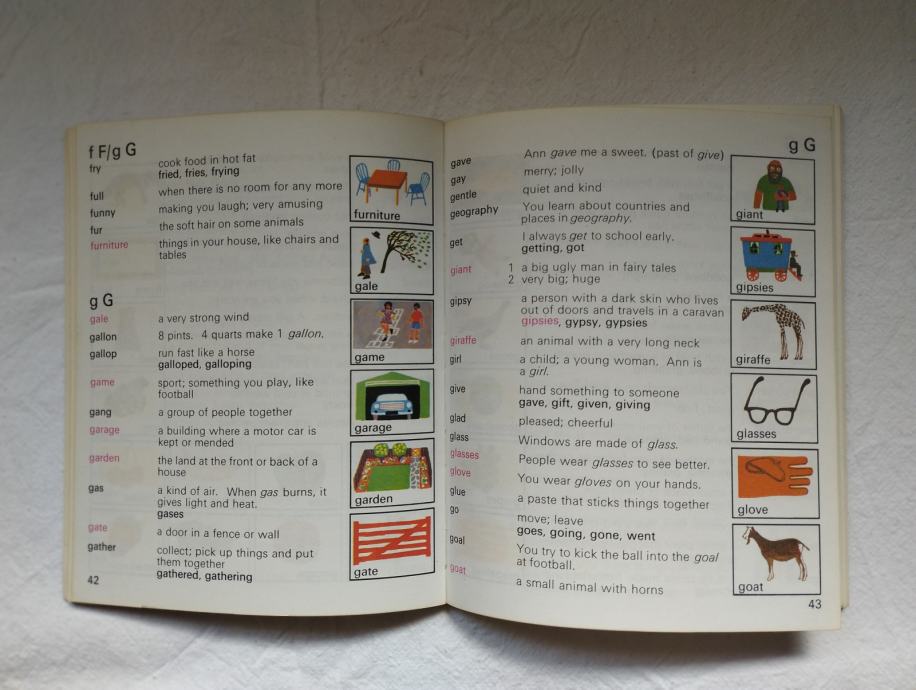 f F/g G
fry cook food in hot fat
fried, fries, frying
full when there is no room for any more
funny making you laugh; very amusing
fur the soft hair on some animals
furniture things in your house, like chairs and
tables
g G
gale a very strong wind
gallon 8 pints. 4 quarts make 1 gallon.
gallop run fast like a horse
galloped, galloping
game sport; something you play, like
football
gang a group of people together
garage a building where a motor car is
kept or mended
garden the land at the front or back of a
house
gas a kind of air. When gas burns, it
gives light and heat.
gases
gate a door in a fence or wall
gather collect; pick up things and put
them together
gathered, gathering
42
furniture
gale
game
garage
garden
gate
g G
gave Ann gave me a sweet. (past of give)
gay merry; jolly
gentle quiet and kind
geography You learn about countries and
places in geography.
get I always get to school early.
getting, got
giant 1 a big ugly man in fairy tales
2 very big; huge
gipsy a person with a dark skin who lives
out of doors and travels in a caravan
gipsies, gypsy, gypsies
giraffe an animal with a very long neck
girl a child; a young woman. Ann is
a girl.
give hand something to someone
gave, gift, given, giving
glad pleased; cheerful
glass Windows are made of glass.
glasses People wear glasses to see better.
glove You wear gloves on your hands.
glue a paste that sticks things together
go move; leave
goes, going, gone, went
goal You try to kick the ball into the goal
at football.
goat a small animal with horns
giant
gipsies
giraffe
glasses
glove
goat
43